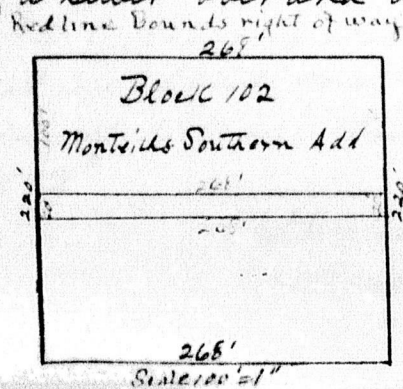 Red line Bounds right of way
268'
Block 102
Monteiths Southern Add
100'
268'
220'
220'
268'
268'
Scale 100' = 1"